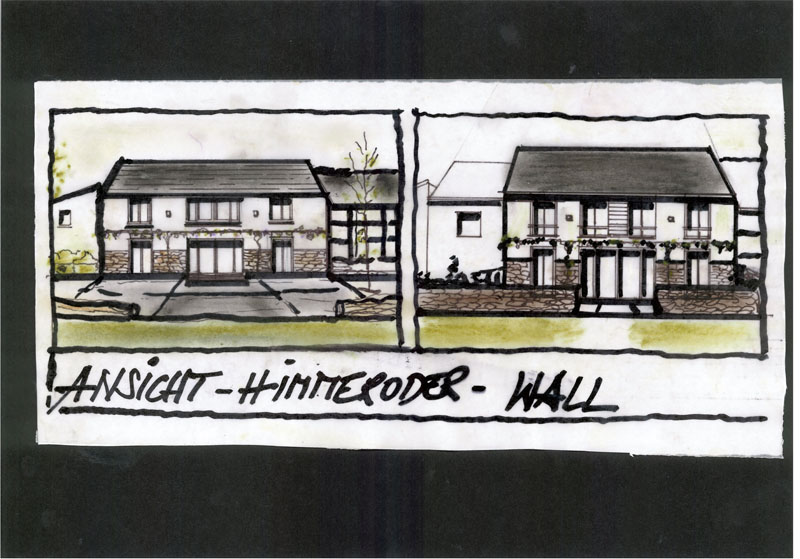 ANSICHT - HIMMERODER - WALL